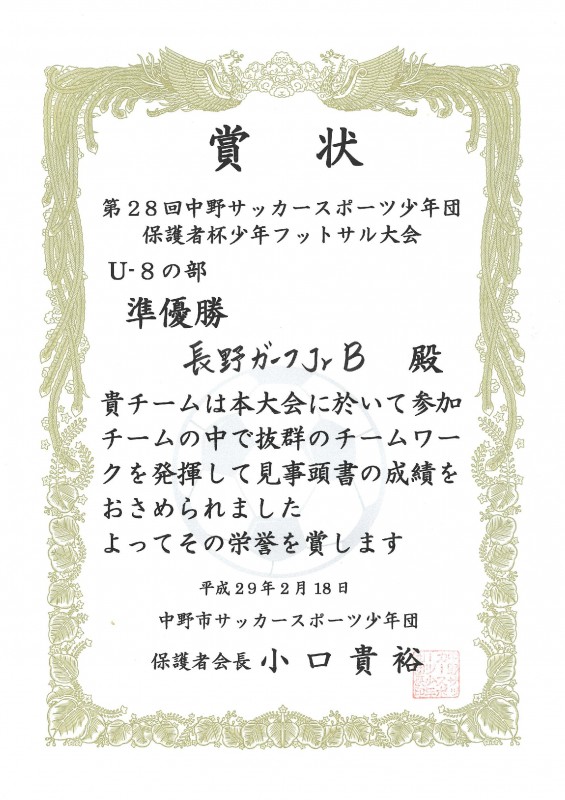 賞状
第28回中野サッカースポーツ少年団
保護者杯少年フットサル大会
U-8の部
準優勝
長野ガーフJr B 殿
貴チームは本大会に於いて参加
チームの中で抜群のチームワー
クを発揮して見事頭書の成績を
おさめられました
よってその栄誉を賞します
平成29年2月18日
中野市サッカースポーツ少年団
保護者会長 小口貴裕